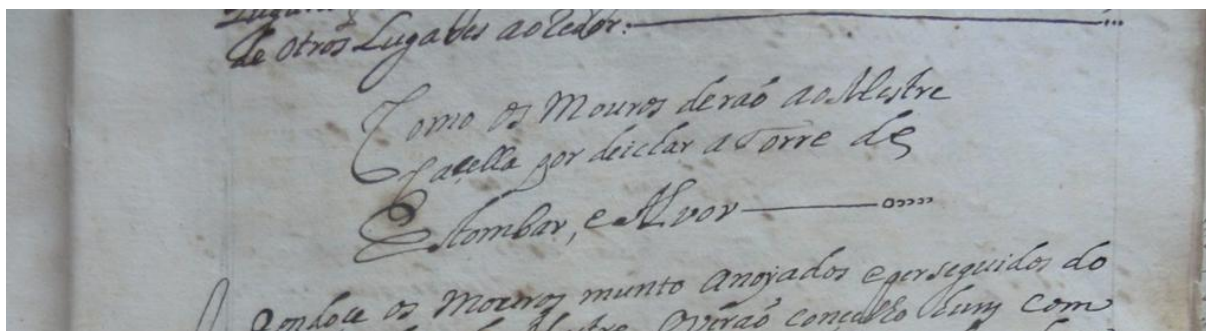 de otros Lugares ao Redor:
Como os Mouros deraõ ao Mestre
Caçella por deictar a Torre de
Estombar, e Alvor
os Mouros munto Anojados e perseguidos do
Mestre, ouveraõ concelho hum com